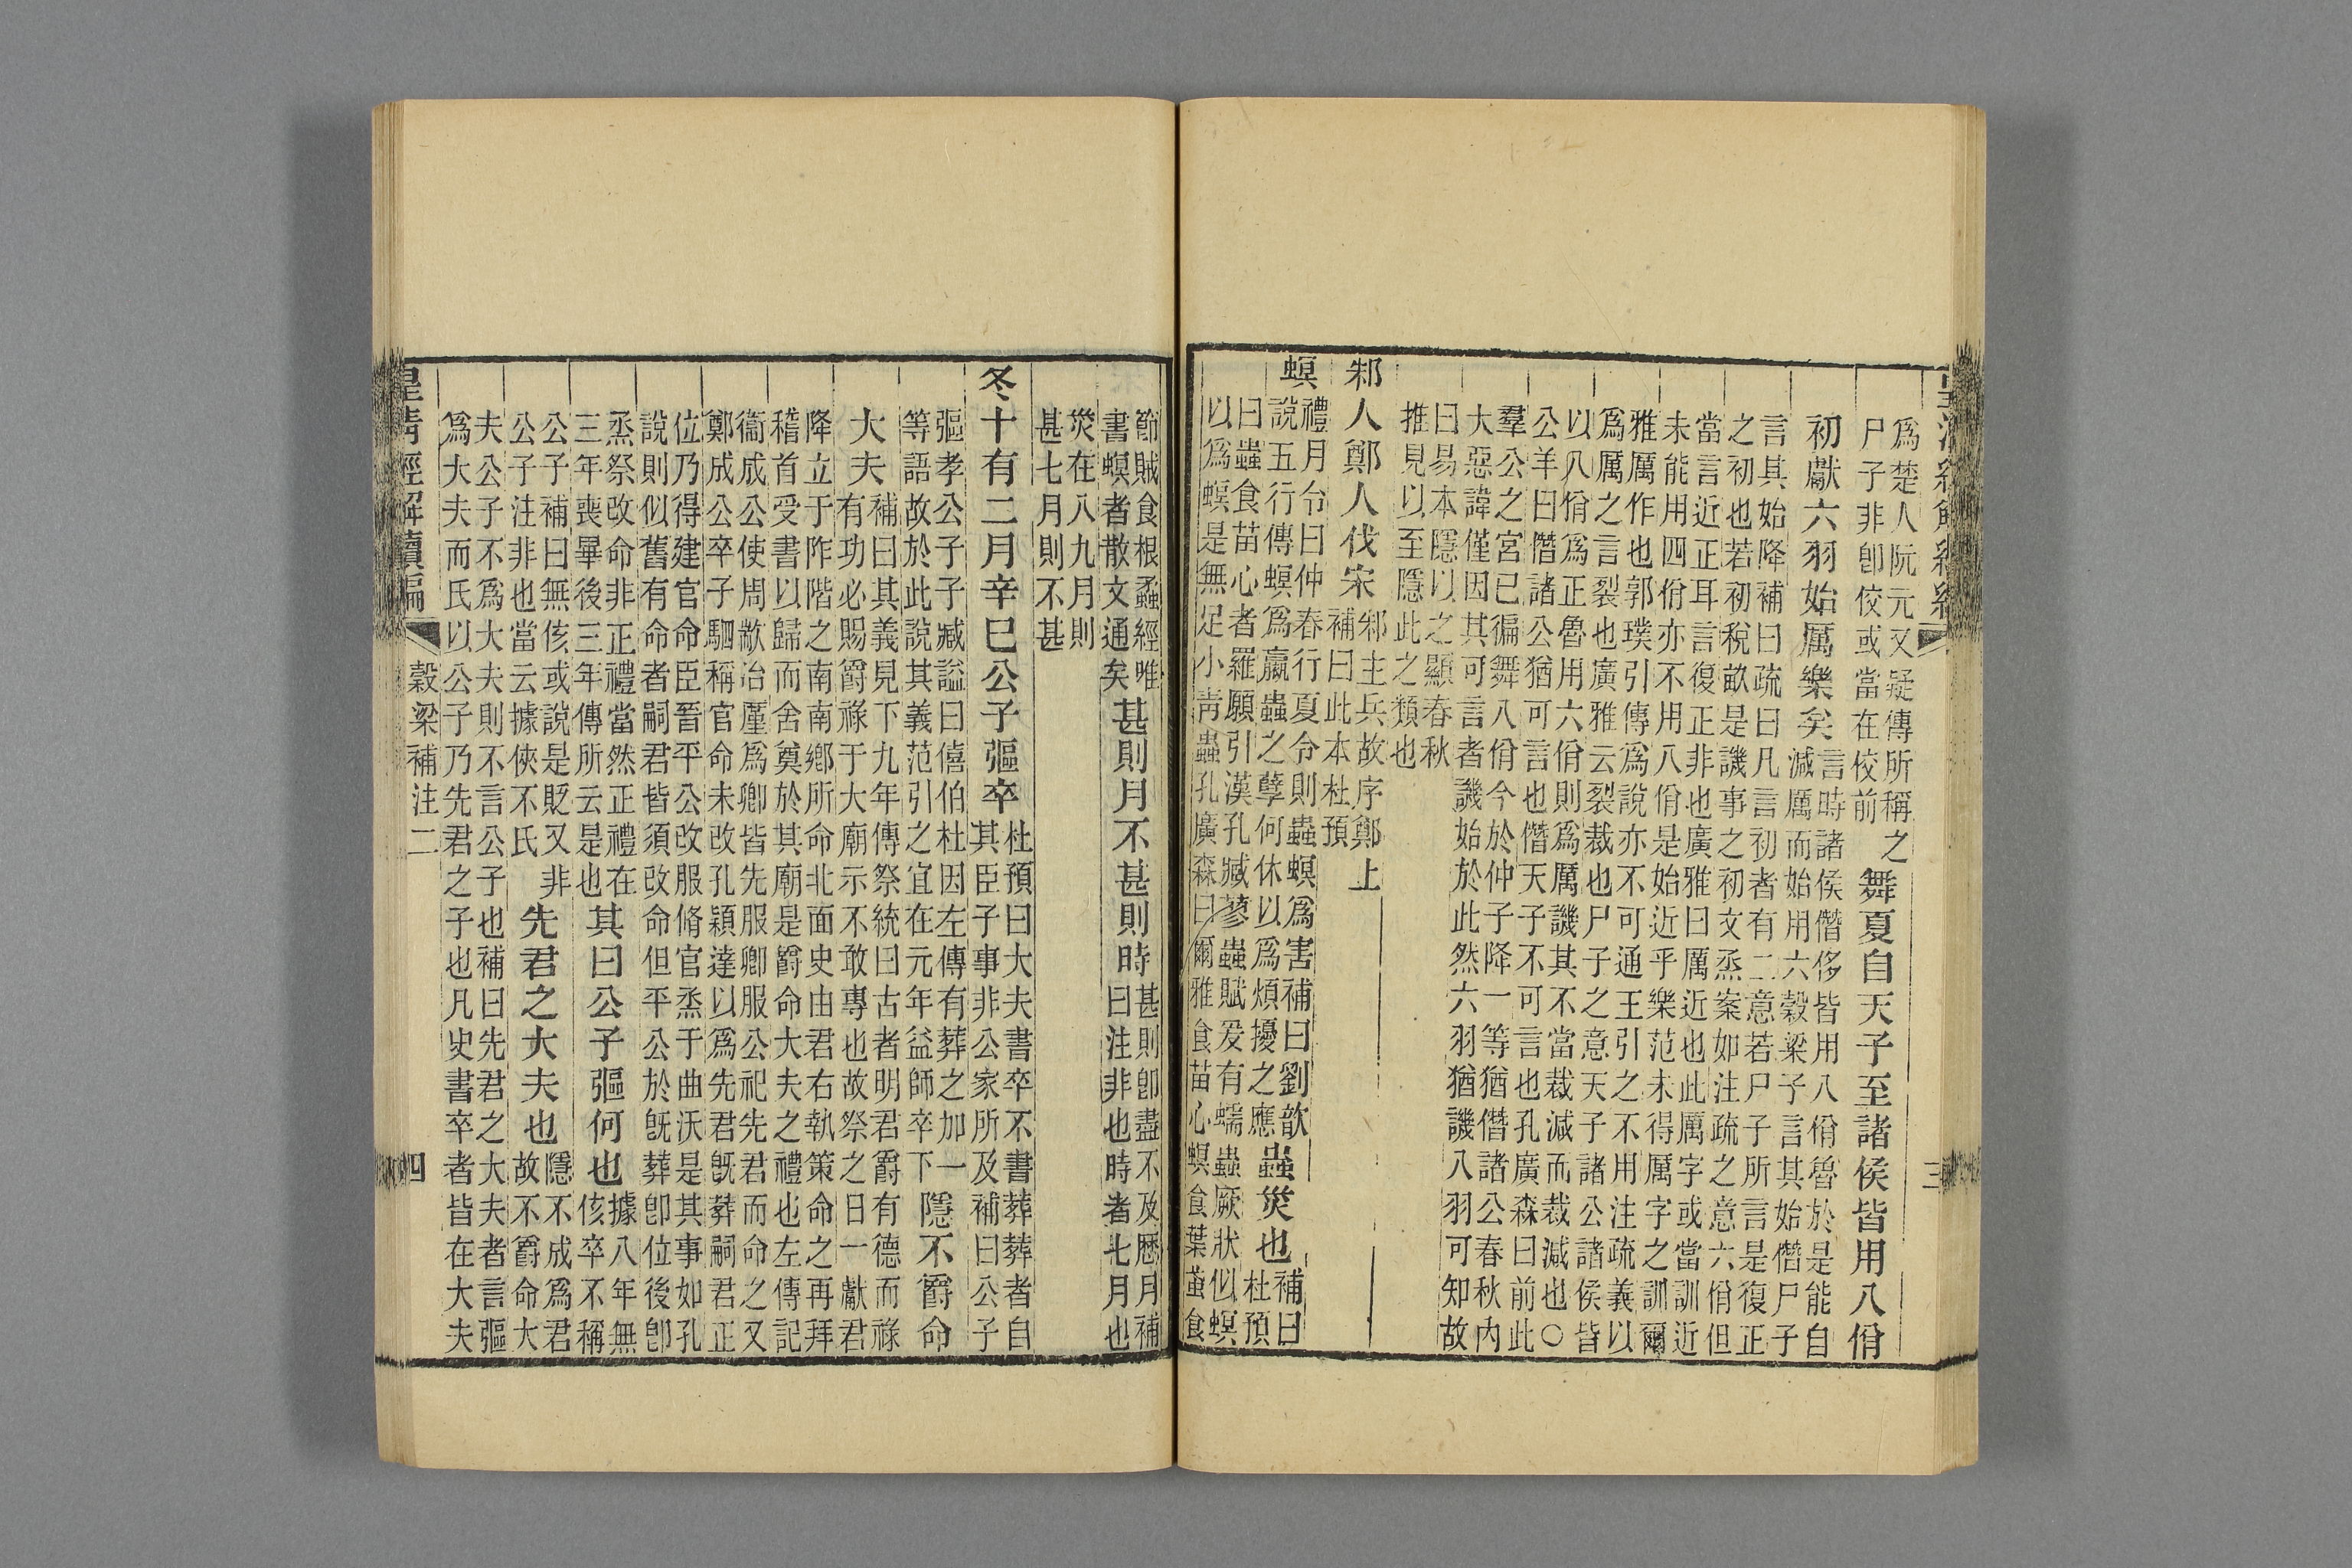 皇清經解續編 三
為楚人阮元又疑傳所稱之
尸子非卽佼或當在佼前
舞夏自天子至諸侯皆用八佾
初獻六羽始厲樂矣
言時諸侯僭侈皆用八佾魯於是能自
減厲而始用六穀梁子言其始僭尸子
言其始降補曰疏曰凡言初者有二意若尸子所言是復正
之初也若初稅畝是譏事之初文烝案如注疏之意六佾但
當言近正耳言復正非也廣雅曰厲近也此厲字或當訓近
未能用四佾亦不用八佾是始近乎樂范未得厲字之訓爾
雅厲作也郭璞引傳爲說亦不可通王引之不用注疏義以
爲厲之言裂也廣雅云裂裁也尸子之意天子諸公諸侯皆
以八佾爲正魯用六佾則爲厲譏其不當裁減而裁減也○
公羊曰僭諸公猶可言也僭天子不可言也孔廣森曰前此
羣公之宮已徧舞八佾今於仲子降一等猶僭諸公春秋內
大惡諱僅因其可言者譏始於此然六羽猶譏八羽可知故
曰易本隱以之顯春秋
推見以至隱此之類也
邾人鄭人伐宋
邾主兵故序鄭上
補曰此本杜預
螟
禮月令曰仲春行夏令則蟲螟爲害補曰劉歆
說五行傳螟爲蠃蟲之孽何休以爲煩擾之應
蟲災也
補曰
杜預
曰蟲食苗心者羅願引漢孔臧蓼蟲賦爰有蠕蟲厥狀似螟
以爲螟是無足小靑蟲孔廣森曰爾雅食苗心螟食葉蟘食
節賊食根蟊經唯
書螟者散文通矣
甚則月不甚則時
甚則卽盡不及歷月補
曰注非也時者七月也
災在八九月則
甚七月則不甚
冬十有二月辛巳公子彄卒
杜預曰大夫書卒不書葬葬者自
其臣子事非公家所及補曰公子
彄孝公子子臧諡曰僖伯杜因左傳有葬之加一
等語故於此說其義范引之宜在元年益師卒下
隱不爵命
大夫
補曰其義見下九年傳祭統曰古者明君爵有德而祿
有功必賜爵祿于大廟示不敢專也故祭之日一獻君
降立于阼階之南南鄉所命北面史由君右執策命之再拜
稽首受書以歸而舍奠於其廟是爵命大夫之禮也左傳記
衞成公使周歂冶廑爲卿皆先服卿服公祀先君而命之又
鄭成公卒子駟稱官命未改孔穎達以爲先君旣葬嗣君正
位乃得建官命臣晉平公改服脩官烝于曲沃是其事如孔
說則似舊有命者嗣君皆須改命但平公於旣葬卽位後卽
烝祭改命非正禮當然正禮在
三年喪畢後三年傳所云是也
其曰公子彄何也
據八年無
侅卒不稱
公子補曰無侅或說是貶又非
公子注非也當云據俠不氏
先君之大夫也
隱不成爲君
故不爵命大
夫公子不爲大夫則不言公子也補曰先君之大夫者言彄
爲大夫而氏以公子乃先君之子也凡史書卒者皆在大夫
皇清經解續編 穀梁補注二 四